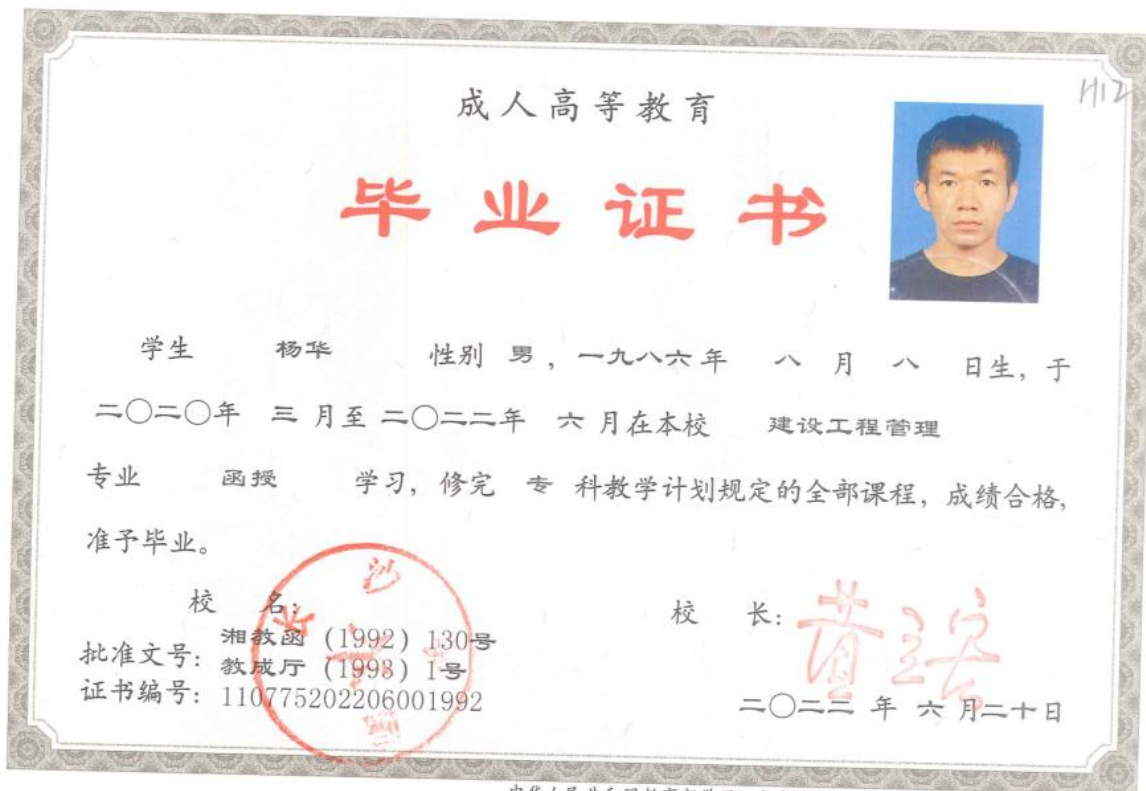 成人高等教育
H12
毕业证书
学生 杨华 性别 男，一九八六年 八 月 八 日生，于
二〇二〇年 三 月至 二〇二二年 六 月在本校 建设工程管理
专业 函授 学习，修完 专 科教学计划规定的全部课程，成绩合格，
准予毕业。
校 名：
校 长：
批准文号：湘教函（1992）130号
教成厅（1993）1号
证书编号：110775202206001992
二〇二二 年 六 月二十日